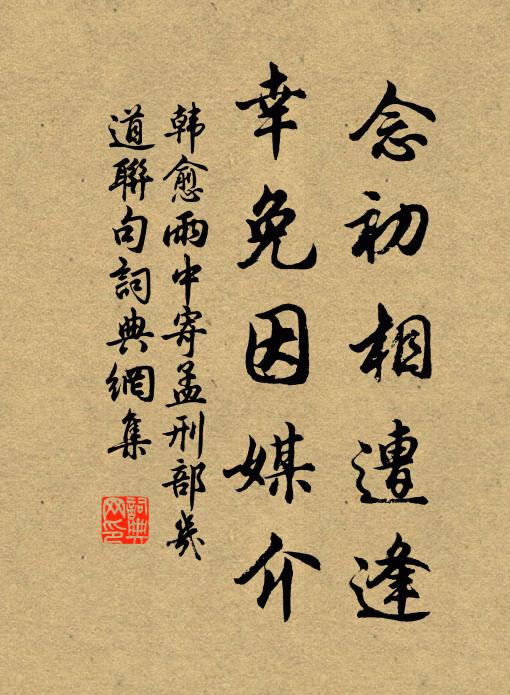 念初相遭逢
幸免因媒介
韩愈雨中寄孟刑部几
道聯句詞典網集
詞典
网印